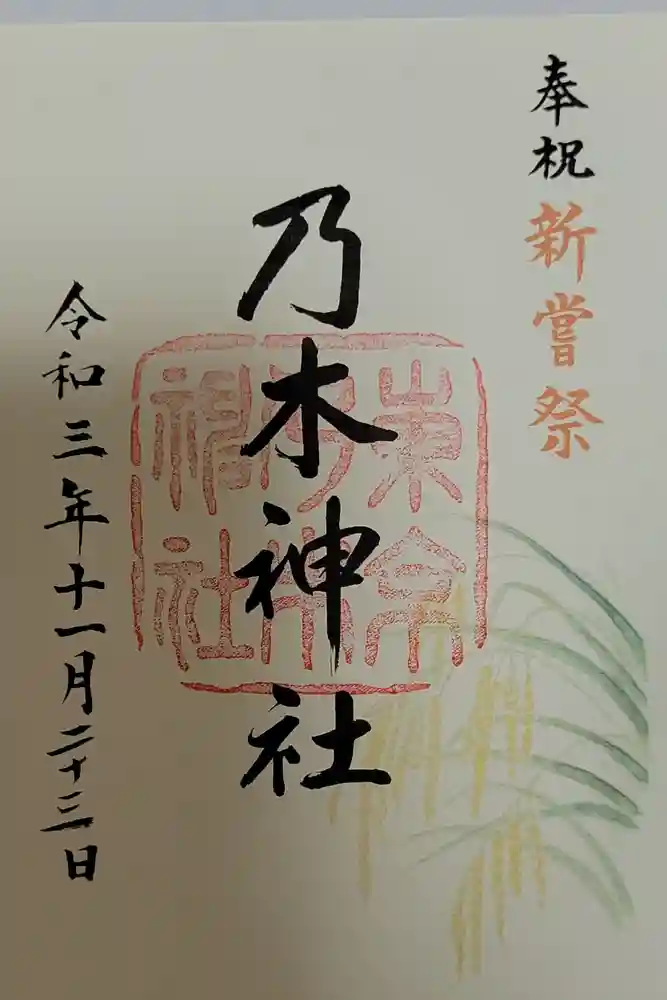 奉祝新嘗祭
乃木神社
東京
乃木
神社
令和三年十一月二十三日